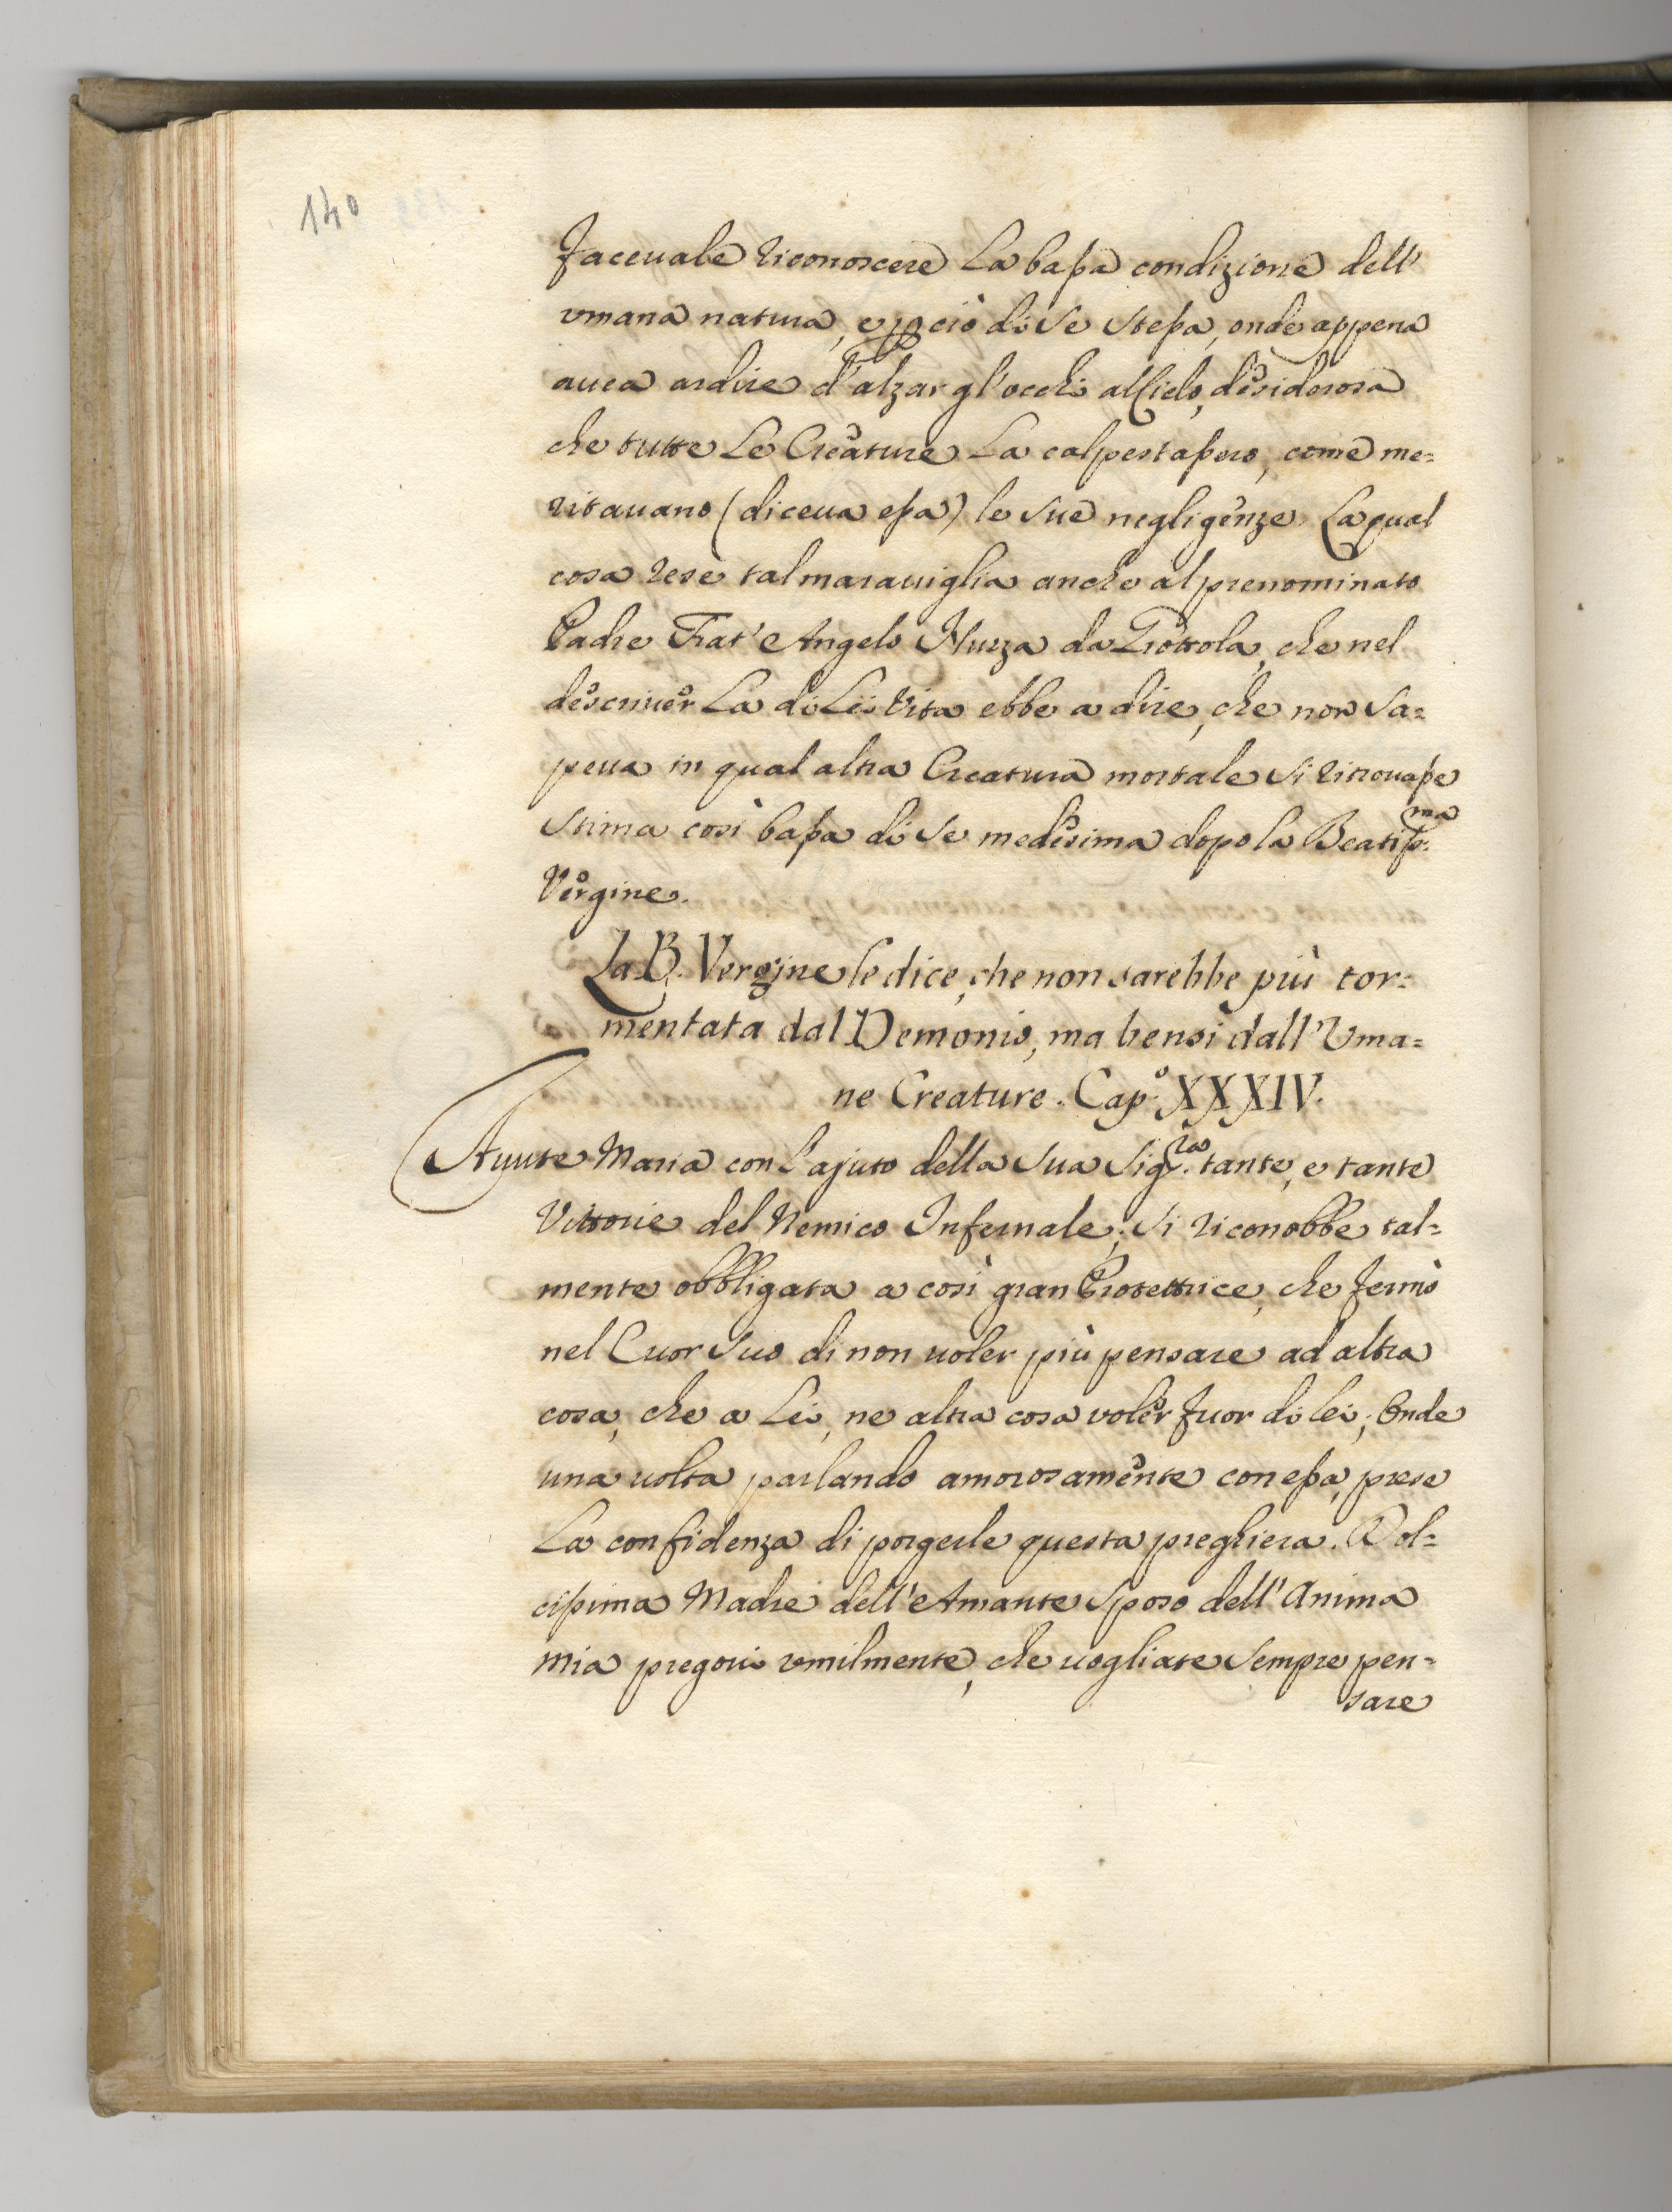 140
faceuale riconoscere La bassa condizione dell'
vmana natura, e perciò di se stessa, onde appena
auea ardire d'alzar gl'occhi al Cielo, desiderosa
che tutte Le Creature La calpestassero, come me=
ritauano (diceua essa) le sue negligenze. La qual
cosa rese tal marauiglia anche al prenominato
Padre Frat' Angelo da Grottola, che nel
descriuer La di Lei Vita ebbe a dire, che non sa=
peua in qual altra Creatura mortale si ritrouasse
stima così bassa di se medesima dopo la Beatiss.ma
Vergine.
La B. Vergine le dice, che non sarebbe più tor=
mentata dal Demonio, ma bensi dall' Vma=
ne Creature. Cap.o XXXIV.
Auute Maria con l'ajuto della sua Sig.ra tante, e tante
Vittorie del Nemico Infernale; si riconobbe tal=
mente obbligata a così gran Protettrice, che fermò
nel Cuor suo di non uoler più pensare ad altra
cosa, che a Lei, ne altra cosa voler fuor di lei; Onde
una uolta parlando amorosamente con essa, prese
La confidenza di porgerle questa preghiera. Dol=
cissima Madre dell' Amante Sposo dell' Anima
mia pregoui vmilmente, che uogliate sempre pen=
sare